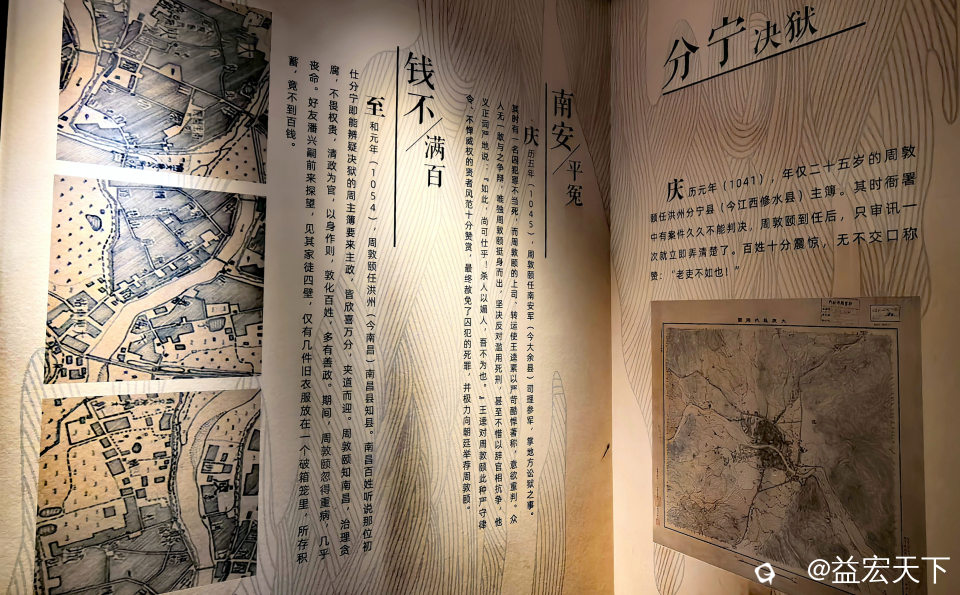 分宁/决狱
庆历元年（1041），年仅二十五岁的周敦
颐任洪州分宁县（今江西修水县）主簿。其时衙署
中有案件久久不能判决，周敦颐到任后，只审讯一
次就立即弄清楚了。百姓十分震惊，无不交口称
赞：“老吏不如也！”
南安/平冤
庆历五年（1045），周敦颐任南安军（今大余县）司理参军，掌地方讼狱之事。
其时有一名囚犯罪不当死，而周敦颐的上司、转运使王逵素以严苛酷悍著称，意欲重判。众
人无一敢与之争辩，唯独周敦颐挺身而出，坚决反对滥用死刑，甚至不惜以辞官相抗争，他
义正词严地说：“如此，尚可仕乎！杀人以媚人，吾不为也。”王逵对周敦颐此种严守律
令、不惮威权的贤者风范十分赞赏，最终赦免了囚犯的死罪，并极力向朝廷举荐周敦颐。
钱不/满百
至和元年（1054），周敦颐任洪州（今南昌）南昌县知县。南昌百姓听说那位初
仕分宁即能辨疑决狱的周主簿要来主政，皆欣喜万分，夹道而迎。周敦颐知南昌，治理贪
腐，不畏权贵，清政为官，以身作则，敦化百姓，多有善政。期间，周敦颐忽得重病，几乎
丧命。好友潘兴嗣前来探望，见其家徒四壁，仅有几件旧衣服放在一个破箱笼里，所存积
蓄，竟不到百钱。
@益宏天下